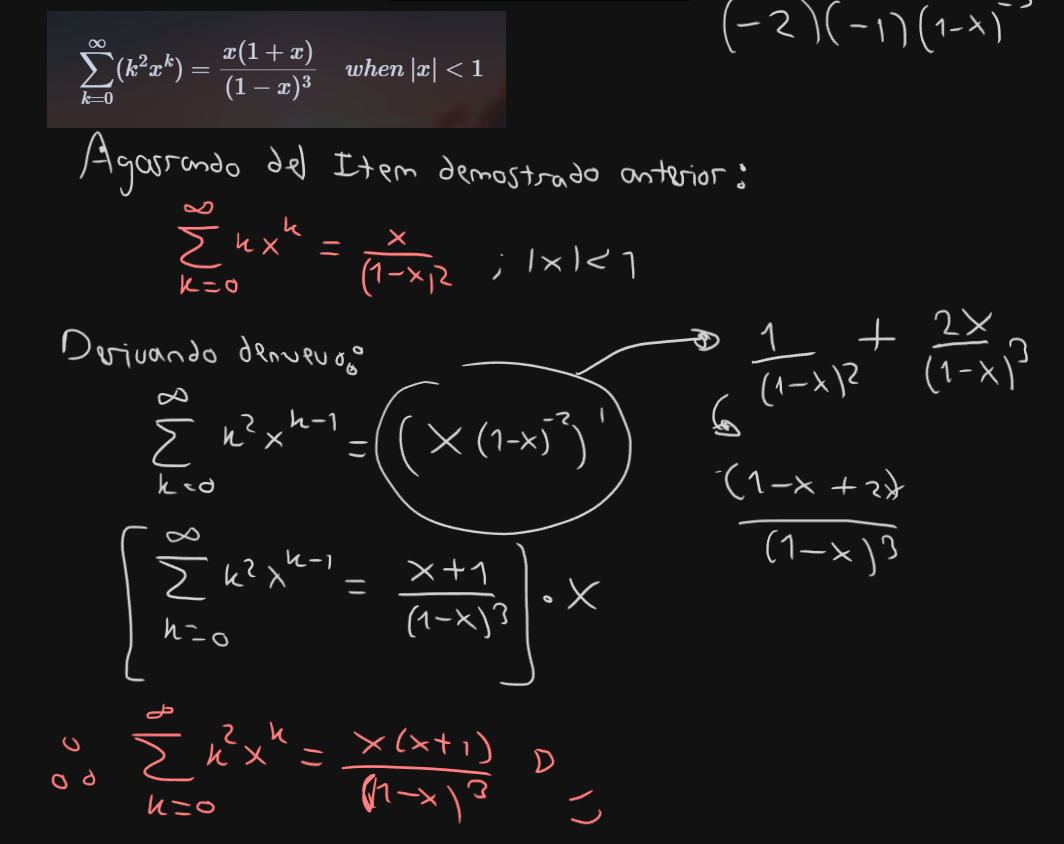 (-2)(-1)(1-x)^{-3}
\sum_{k=0}^{\infty}(k^2x^k) = \frac{x(1+x)}{(1-x)^3} when |x| < 1
Agarrando del Item demostrado anterior:
\sum_{k=0}^{\infty} k x^k = \frac{x}{(1-x)^2} ; |x|<1
Derivando denuevo:
\frac{1}{(1-x)^2} + \frac{2x}{(1-x)^3}
\sum_{k=0}^{\infty} k^2 x^{k-1} = (x(1-x)^{-2})'
\frac{(1-x+2x}{(1-x)^3}
[\sum_{k=0}^{\infty} k^2 x^{k-1} = \frac{x+1}{(1-x)^3}] · x
∴ \sum_{k=0}^{\infty} k^2 x^k = \frac{x(x+1)}{(1-x)^3} D
=)